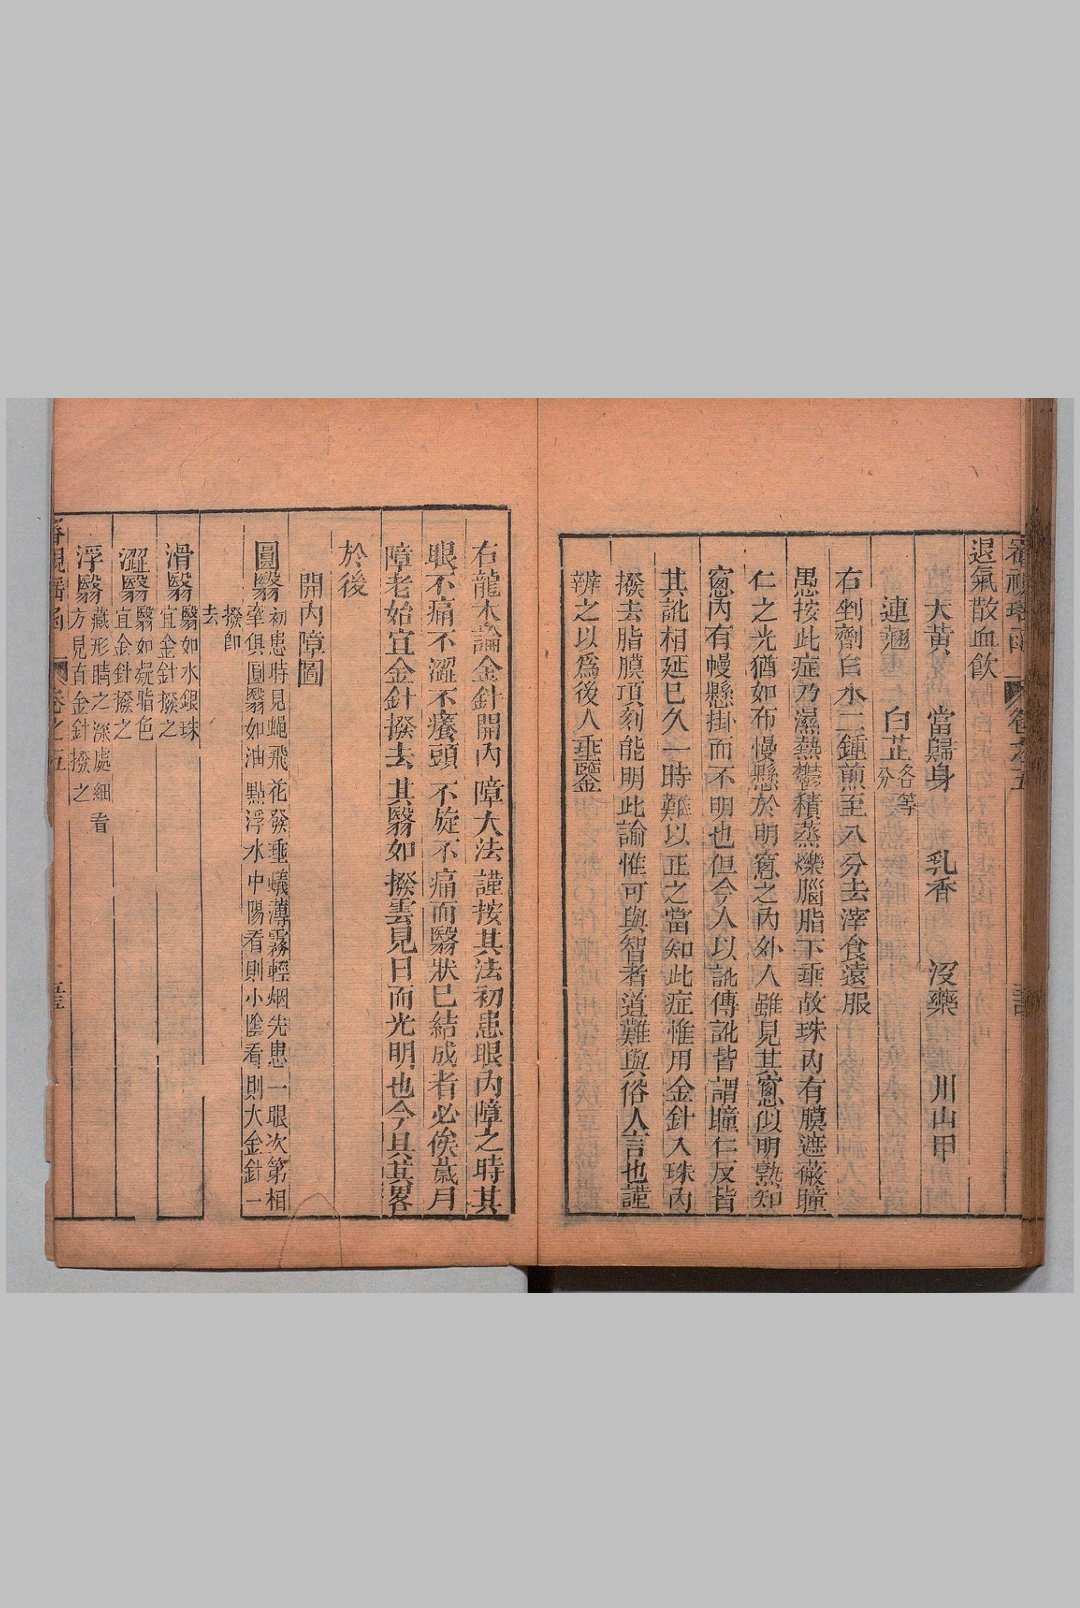 審視瑤函 卷之五
退氣散血飲
大黃 當歸身 乳香 沒藥 川山甲
連翹 白芷各等分
右剉劑白水二鍾煎至八分去滓食遠服
愚按此症乃濕熱鬱積蒸爍腦脂下垂故珠內有膜遮蔽瞳
仁之光猶如布幔懸於明窻之內外人雖見其窻似明熟知
窻內有幔懸掛而不明也但今人以訛傳訛皆謂瞳仁反背
其訛相延已久一時難以正之當知此症惟用金針入珠內
撥去脂膜頂刻能明此諭惟可與智者道難與俗人言也謹
辨之以爲後人垂鑒
右龍木論金針開內障大法謹按其法初患眼內障之時其
眼不痛不澀不癢頭不旋不痛而翳狀已結成者必俟歲月
障老始宜金針撥去其翳如撥雲見日而光明也今具其畧
於後
開內障圖
圓翳
初患時見蝇飛花發垂蟻薄霧輕烟先患一眼次第相
牽俱圓翳如油點浮水中陽看則小陰看則大金針一
撥即
去
滑翳
翳如水銀珠
宜金針撥之
澀翳
翳如凝脂色
宜金針撥之
浮翳
藏形睛之深處細看
方見宜金針撥之
審視瑤函 卷之五